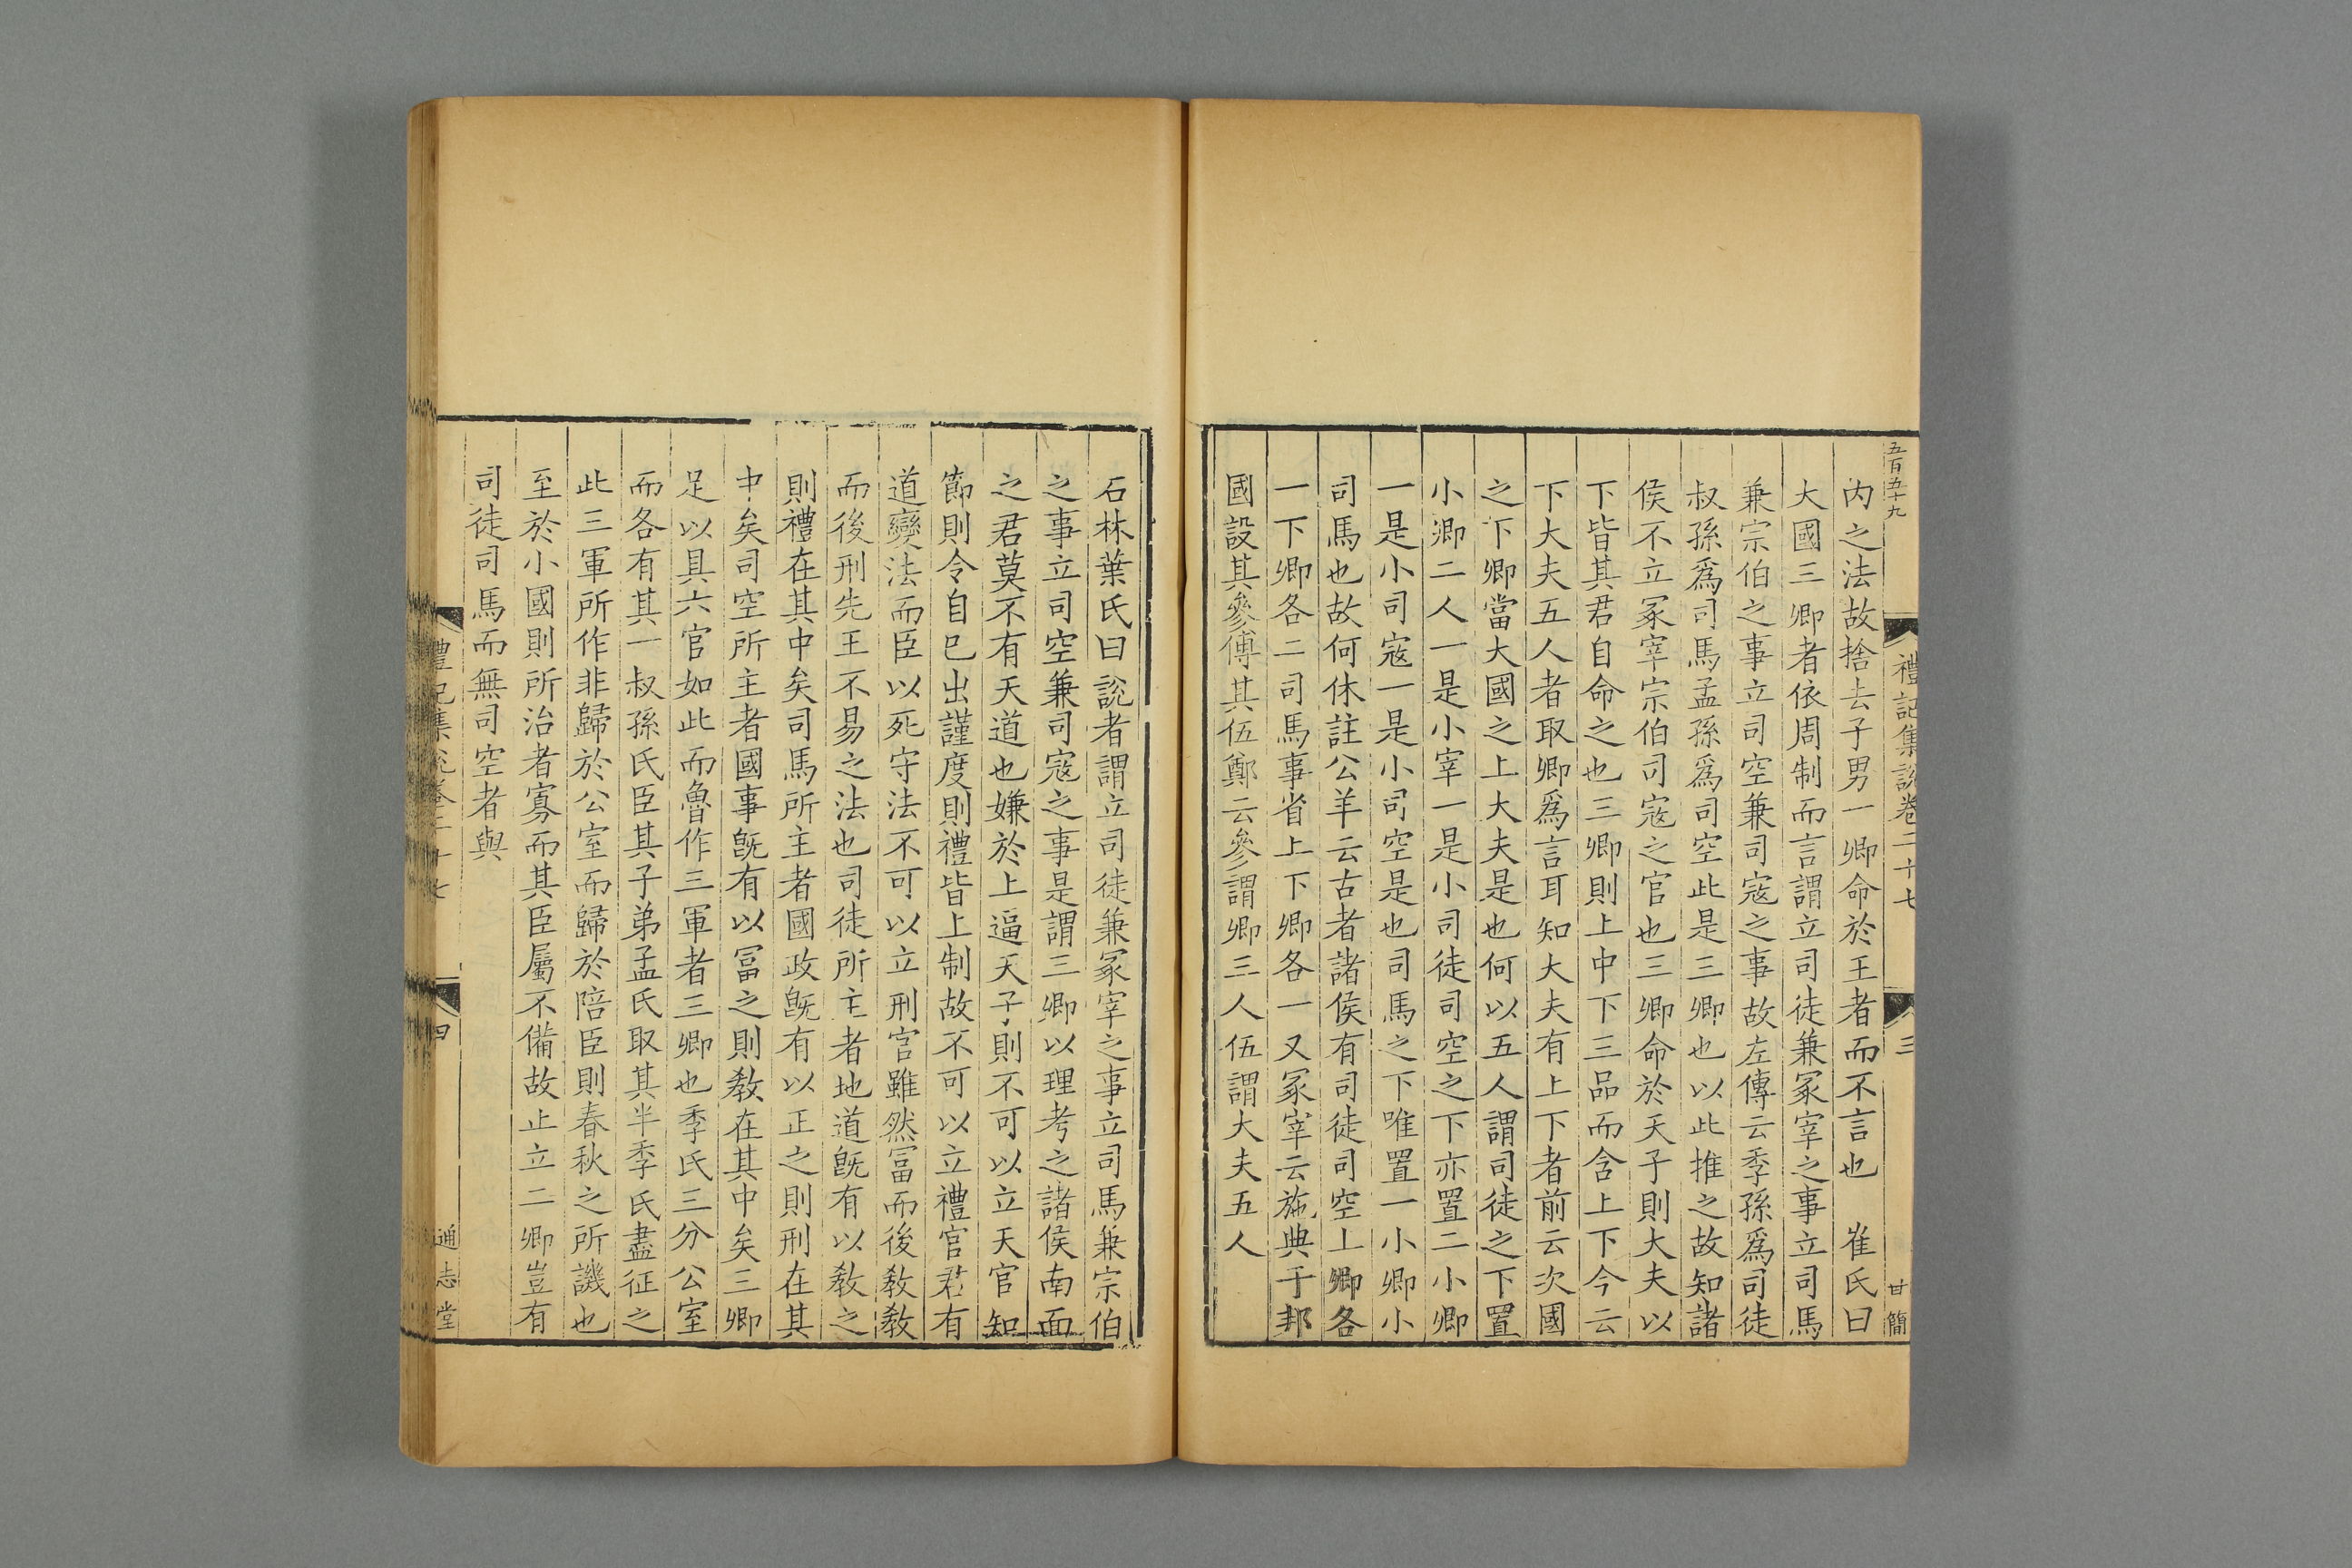 五百五十九
禮記集說卷二十七
三
甘簡
內之法故捨去子男一卿命於王者而不言也　崔氏曰
大國三卿者依周制而言謂立司徒兼冢宰之事立司馬
兼宗伯之事立司空兼司寇之事故左傳云季孫爲司徒
叔孫爲司馬孟孫爲司空此是三卿也以此推之故知諸
侯不立冢宰宗伯司寇之官也三卿命於天子則大夫以
下皆其君自命之也三卿則上中下三品而含上下今云
下大夫五人者取卿爲言耳知大夫有上下者前云次國
之下卿當大國之上大夫是也何以五人謂司徒之下置
小卿二人一是小宰一是小司徒司空之下亦置二小卿
一是小司寇一是小司空是也司馬之下唯置一小卿小
司馬也故何休註公羊云古者諸侯有司徒司空上卿各
一下卿各二司馬事省上下卿各一又冢宰云施典于邦
國設其參傅其伍鄭云參謂卿三人伍謂大夫五人
石林葉氏曰說者謂立司徒兼冢宰之事立司馬兼宗伯
之事立司空兼司寇之事是謂三卿以理考之諸侯南面
之君莫不有天道也嫌於上逼天子則不可以立天官知
節則令自已出謹度則禮皆上制故不可以立禮官君有
道變法而臣以死守法不可以立刑官雖然冨而後敎敎
而後刑先王不易之法也司徒所主者地道旣有以敎之
則禮在其中矣司馬所主者國政旣有以正之則刑在其
中矣司空所主者國事旣有以冨之則敎在其中矣三卿
足以具六官如此而魯作三軍者三卿也季氏三分公室
而各有其一叔孫氏臣其子弟孟氏取其半季氏盡征之
此三軍所作非歸於公室而歸於陪臣則春秋之所譏也
至於小國則所治者寡而其臣屬不備故止立二卿豈有
司徒司馬而無司空者與
禮記集說卷二十七
四
通志堂